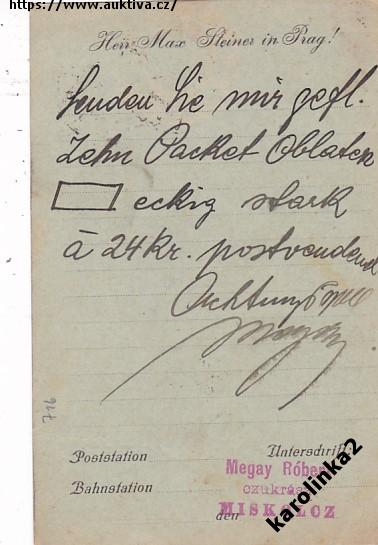 https://www.auktiva.cz/
Herr Max Steiner in Prag!
Senden Sie mir gefl.
Zehn Packet Oblaten
eckig stark
à 24 Kr. postwendend
Achtungsvoll
Megay
716
Poststation
Unterschrift
Bahnstation
Megay Róbert
czukrász
den
MISKOLCZ
karolinka2